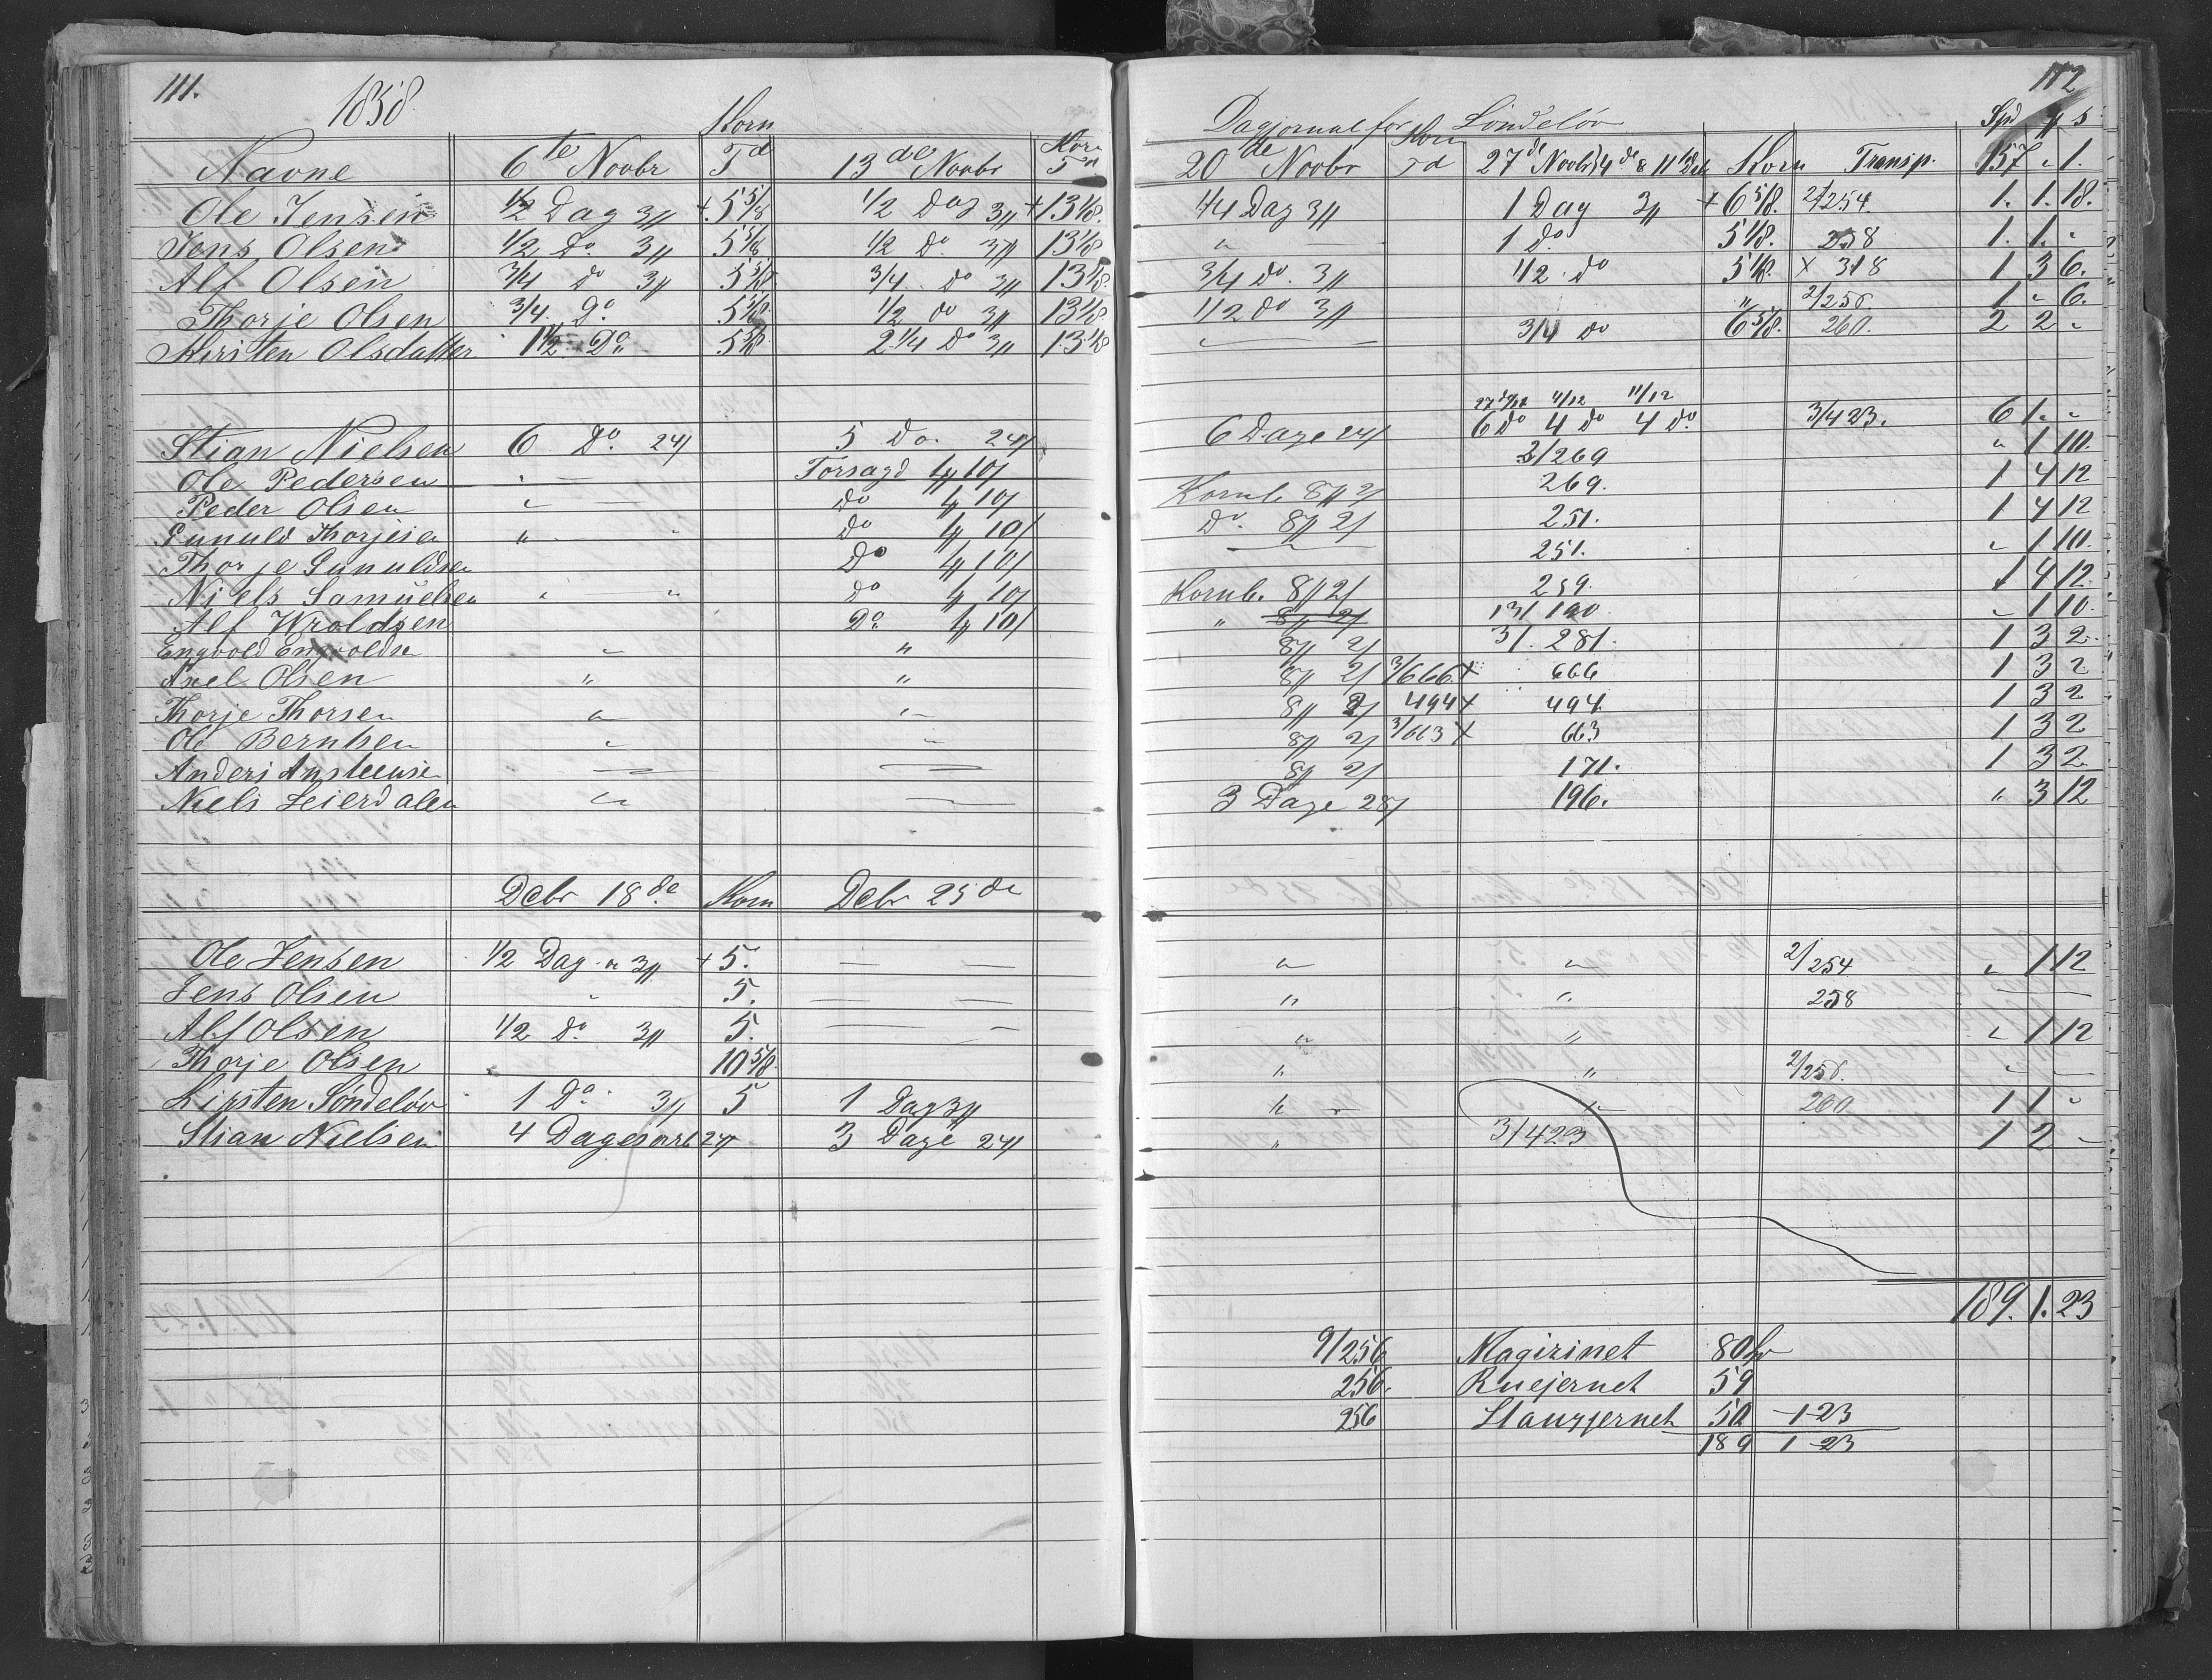 111.
1858
Korn
Navne 6te Novbr Td 13de Novbr Korn Td
Ole Jensen 1/2 Dag 3 + 5 5/8 1/2 Dag 3 + 13 1/8.
Jens Olsen 1/2 Do 3 5 5/8 1/2 Do. 3 13 1/8
Alf Olsen 3/4 do 3 5 5/8 3/4 do 3 13 1/8
Thorje Olsen 3/4. Do 5 5/8 1/2 do 3 13 1/8
Kirsten Olsdatter 1 1/2 Do 5 5/8 2 1/4 do 3 13 1/8
Stian Nielsen 6 Do. 24 5 Do. 24
Ole Pedersen " Torsagd 10
Peder Olsen " do 10
Gunuld Thorjesen " " do 10
Thorje Gunuldsen Do 10
Niels Samuelsen " " do 10
Alf Wroldsen Do. 10
Engvold Engvoldsen " "
Axel Olsen " "
Thorje Thorsen " "
Ole Berntsen " "
Anders
Niels Leierdalen "
Debr 18de Korn Debr 25de
Ole Jensen 1/2 Dag a 3 + 5. — —
Jens Olsen " 5. — —
Alf Olsen 1/2 do. 3 5. — —
Thorje Olsen 10 5/8
Kirsten Søndeløv 1 Do. 3 5 1 Dag 3
Stian Nielsen 4 Dages 24 3 Dage 24
112
Dagjornal for Søndeløv
Korn Spd S
20de Novbr Td 27de Novbr 4de & 11te Korn Transp. 157 " 1.
1/4 Dag 3 1 Day 3 + 6 5/8. 2/254. 1. 1. 18.
" — 1 do 5 1/8. 258 1. 1. "
3/4 do. 3 1/2 do 5 1/8. x 318 1 3 6.
1/2 do 3 " 2/256 1 " 6.
" — 3/4 do 6 5/8. 260. 2 2 "
11/12
6 Dage 24 6 do 4 do 4 do. 3/423. 6 1. "
3/269 " 1 10.
Kornb. 8 2 269. 1 4 12
Do. 8 2 251. 1 4 12
— 251. " 1 10.
Kornb. 8 2 259. 1 4 12.
" 8 2 13/190. " 1 10.
8 2 3/. 281. 1 3 2.
8 2 3/666 x 666 1 3 2
8 2 494 x 494. 1 3 2
8 2 3/663 x 663 1 3 2
8 2 171. 1 3 2.
3 Dage 28 196. " 3 12
" " 2/254 " 1 12
" " 258 —
" " " 1 12
" " 2/256. " —
" " 260 1 1 "
" 3/423 1 2 —
189. 1. 23
9/256 Magizinet 80
256. Ruejernet 59
256 Stangjernet 50 - 1-23
189 1-23